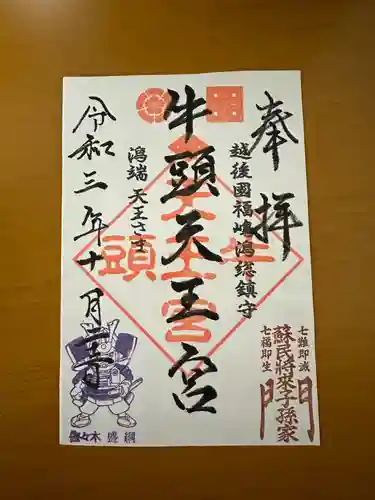 奉拝
越後國福嶋潟総鎮守
牛頭天王宮
潟端 天王さま
令和三年十月
七難即滅
蘇民将来子孫家
七福即生
門
佐々木 盛綱